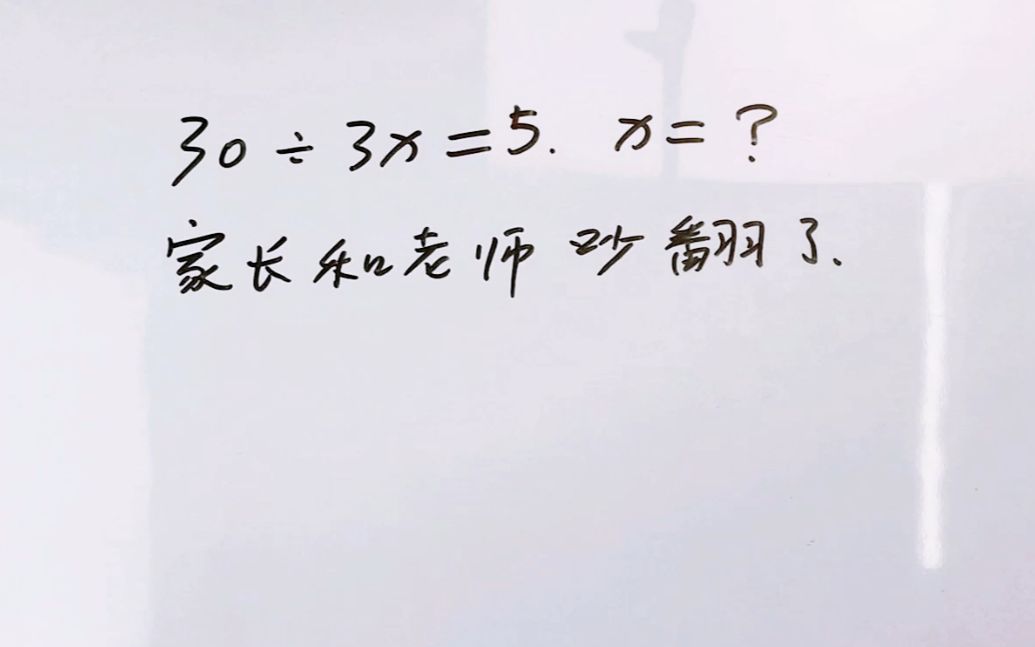 30 ÷ 3x = 5. x = ?
家长和老师吵翻了.